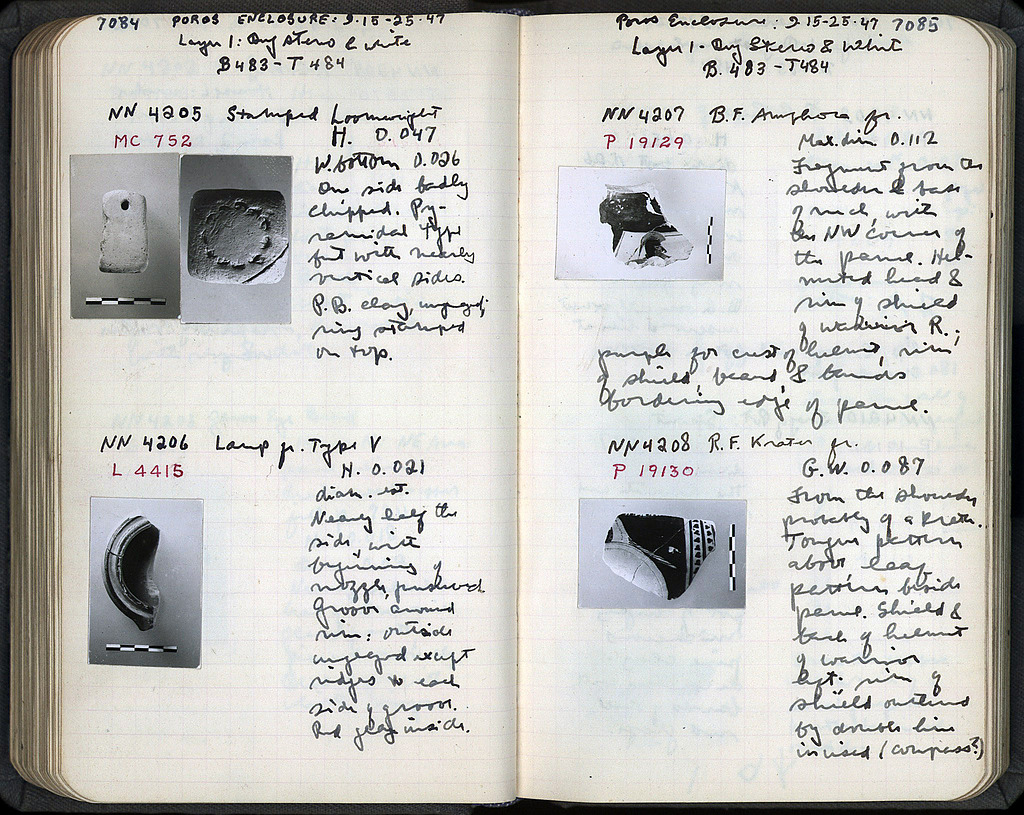 7084 POROS ENCLOSURE: 9-15-25-47
Layer 1: Dug Stereo & white
B483 - T484
NN 4205 Stamped Loomweight
MC 752 H. 0.047
W. bottom 0.026
One side badly
chipped. Py-
ramidal type
but with nearly
vertical sides.
P.B. clay, unglazed;
ring stamped
on top.
NN 4206 Lamp fr. Type V
L 4415 H. 0.021
diam. est.
Nearly half the
side, with
beginning of
nozzle, preserved
Groove around
rim: outside
unglazed except
ridges to each
side of groove.
Red glaze inside.
Poros Enclosure: 9 15-25-47 7085
Layer 1 - Dug Stereo & White
B. 483 - T484
NN 4207 B.F. Amphora fr.
P 19129 Max. dim 0.112
Fragment from the
shoulder & base
of neck, with
the NW corner of
the panel. Hel-
meted head &
rim of shield
of warrior R.;
purple for crest of helmet, rim
of shield, beard, & bands
bordering edge of panel.
NN 4208 R.F. Krater fr.
P 19130 G.W. 0.087
From the shoulder
probably of a krater.
Tongue pattern
above leaf
pattern beside
panel. Shield &
back of helmet
of warrior
left. rim of
shield outlined
by double line
incised (compass?)